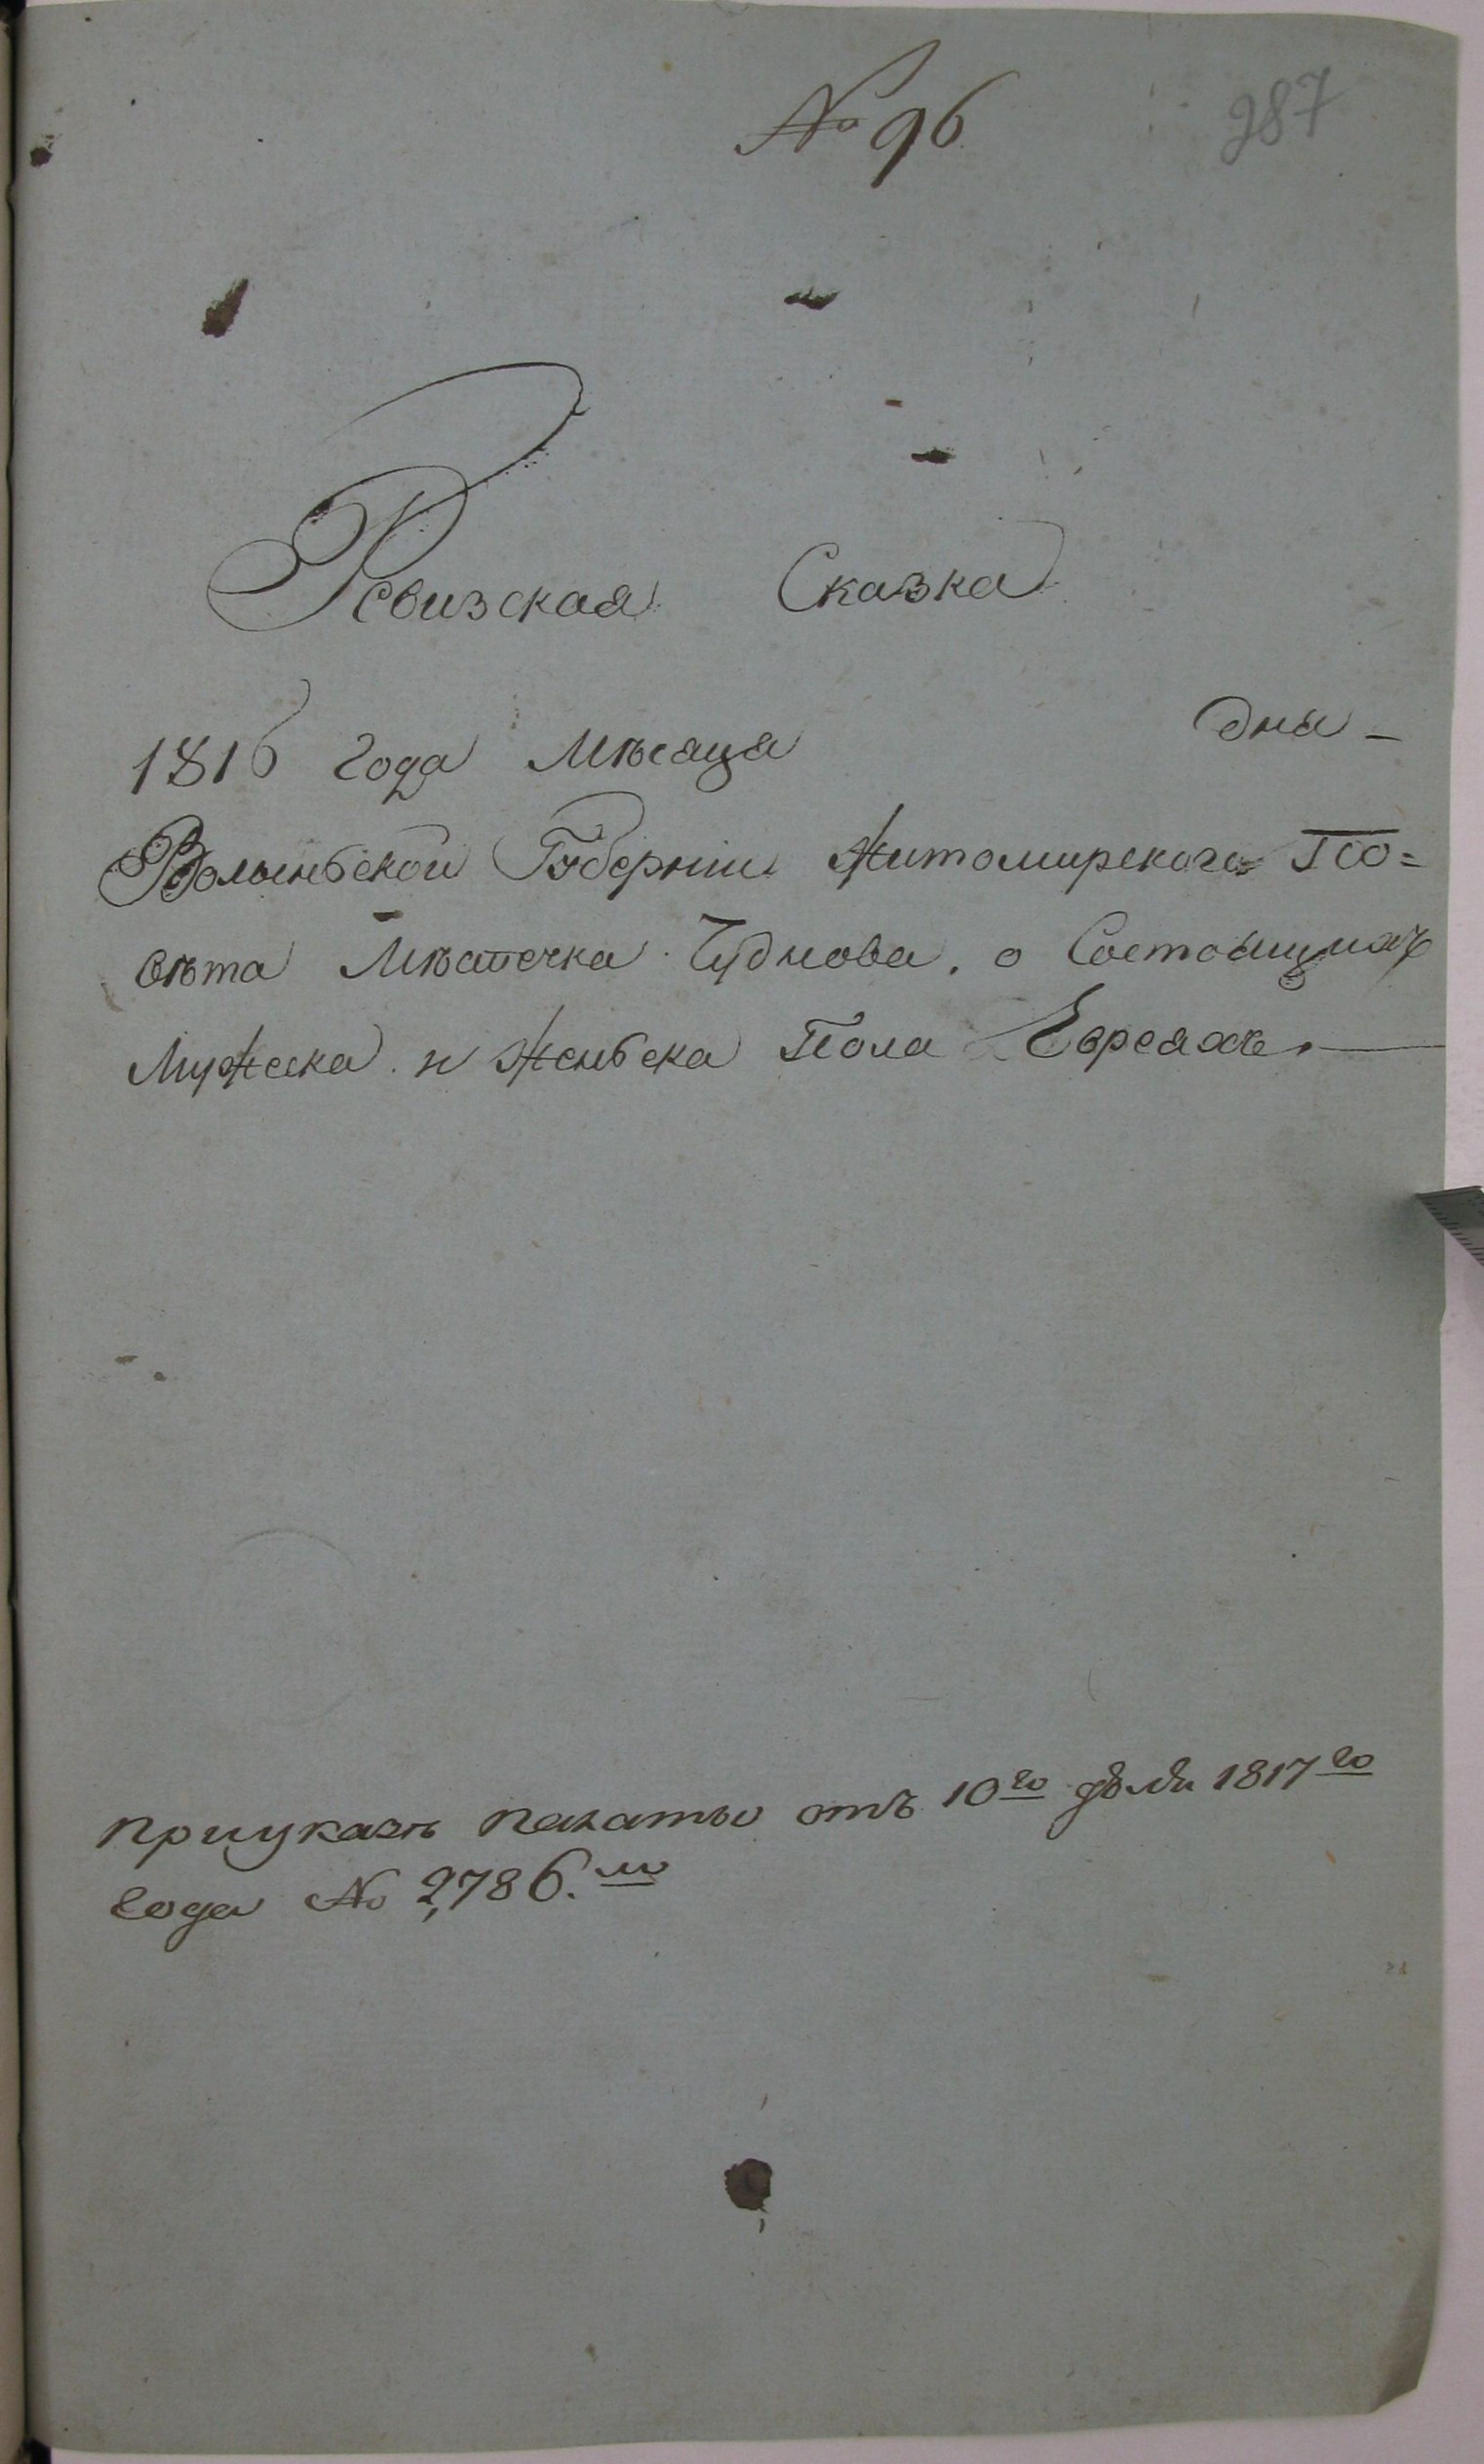 № 96
287
Ревизская Сказка
1816 года Мѣсяца дня –
Волыньской Губерніи Житомирскаго По=
вѣта Мѣстечка Чуднова, о Состоящихъ
Мужеска и Женьска Пола Евреяхъ. —
при указѣ палаты отъ 10го 1817го
года № 2,786.